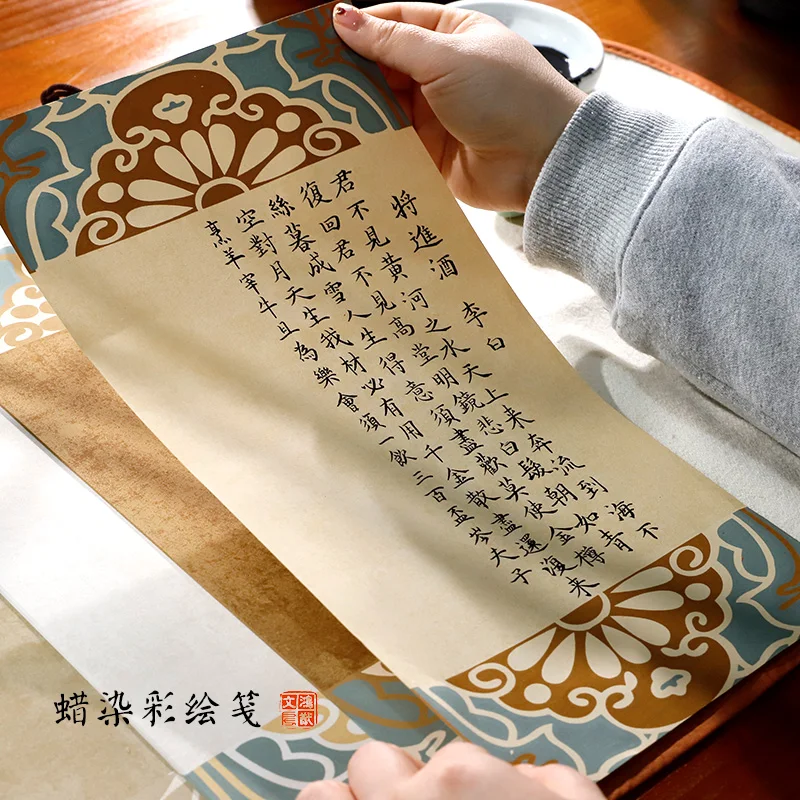 將進酒 李白
君不見黃河之水天上來奔流到海不
復回君不見高堂明鏡悲白髮朝如青
絲暮成雪人生得意須盡歡莫使金樽
空對月天生我材必有用千金散盡還復来
烹羊宰牛且為樂會須一飲三百盃岑夫子
蜡染彩绘笺